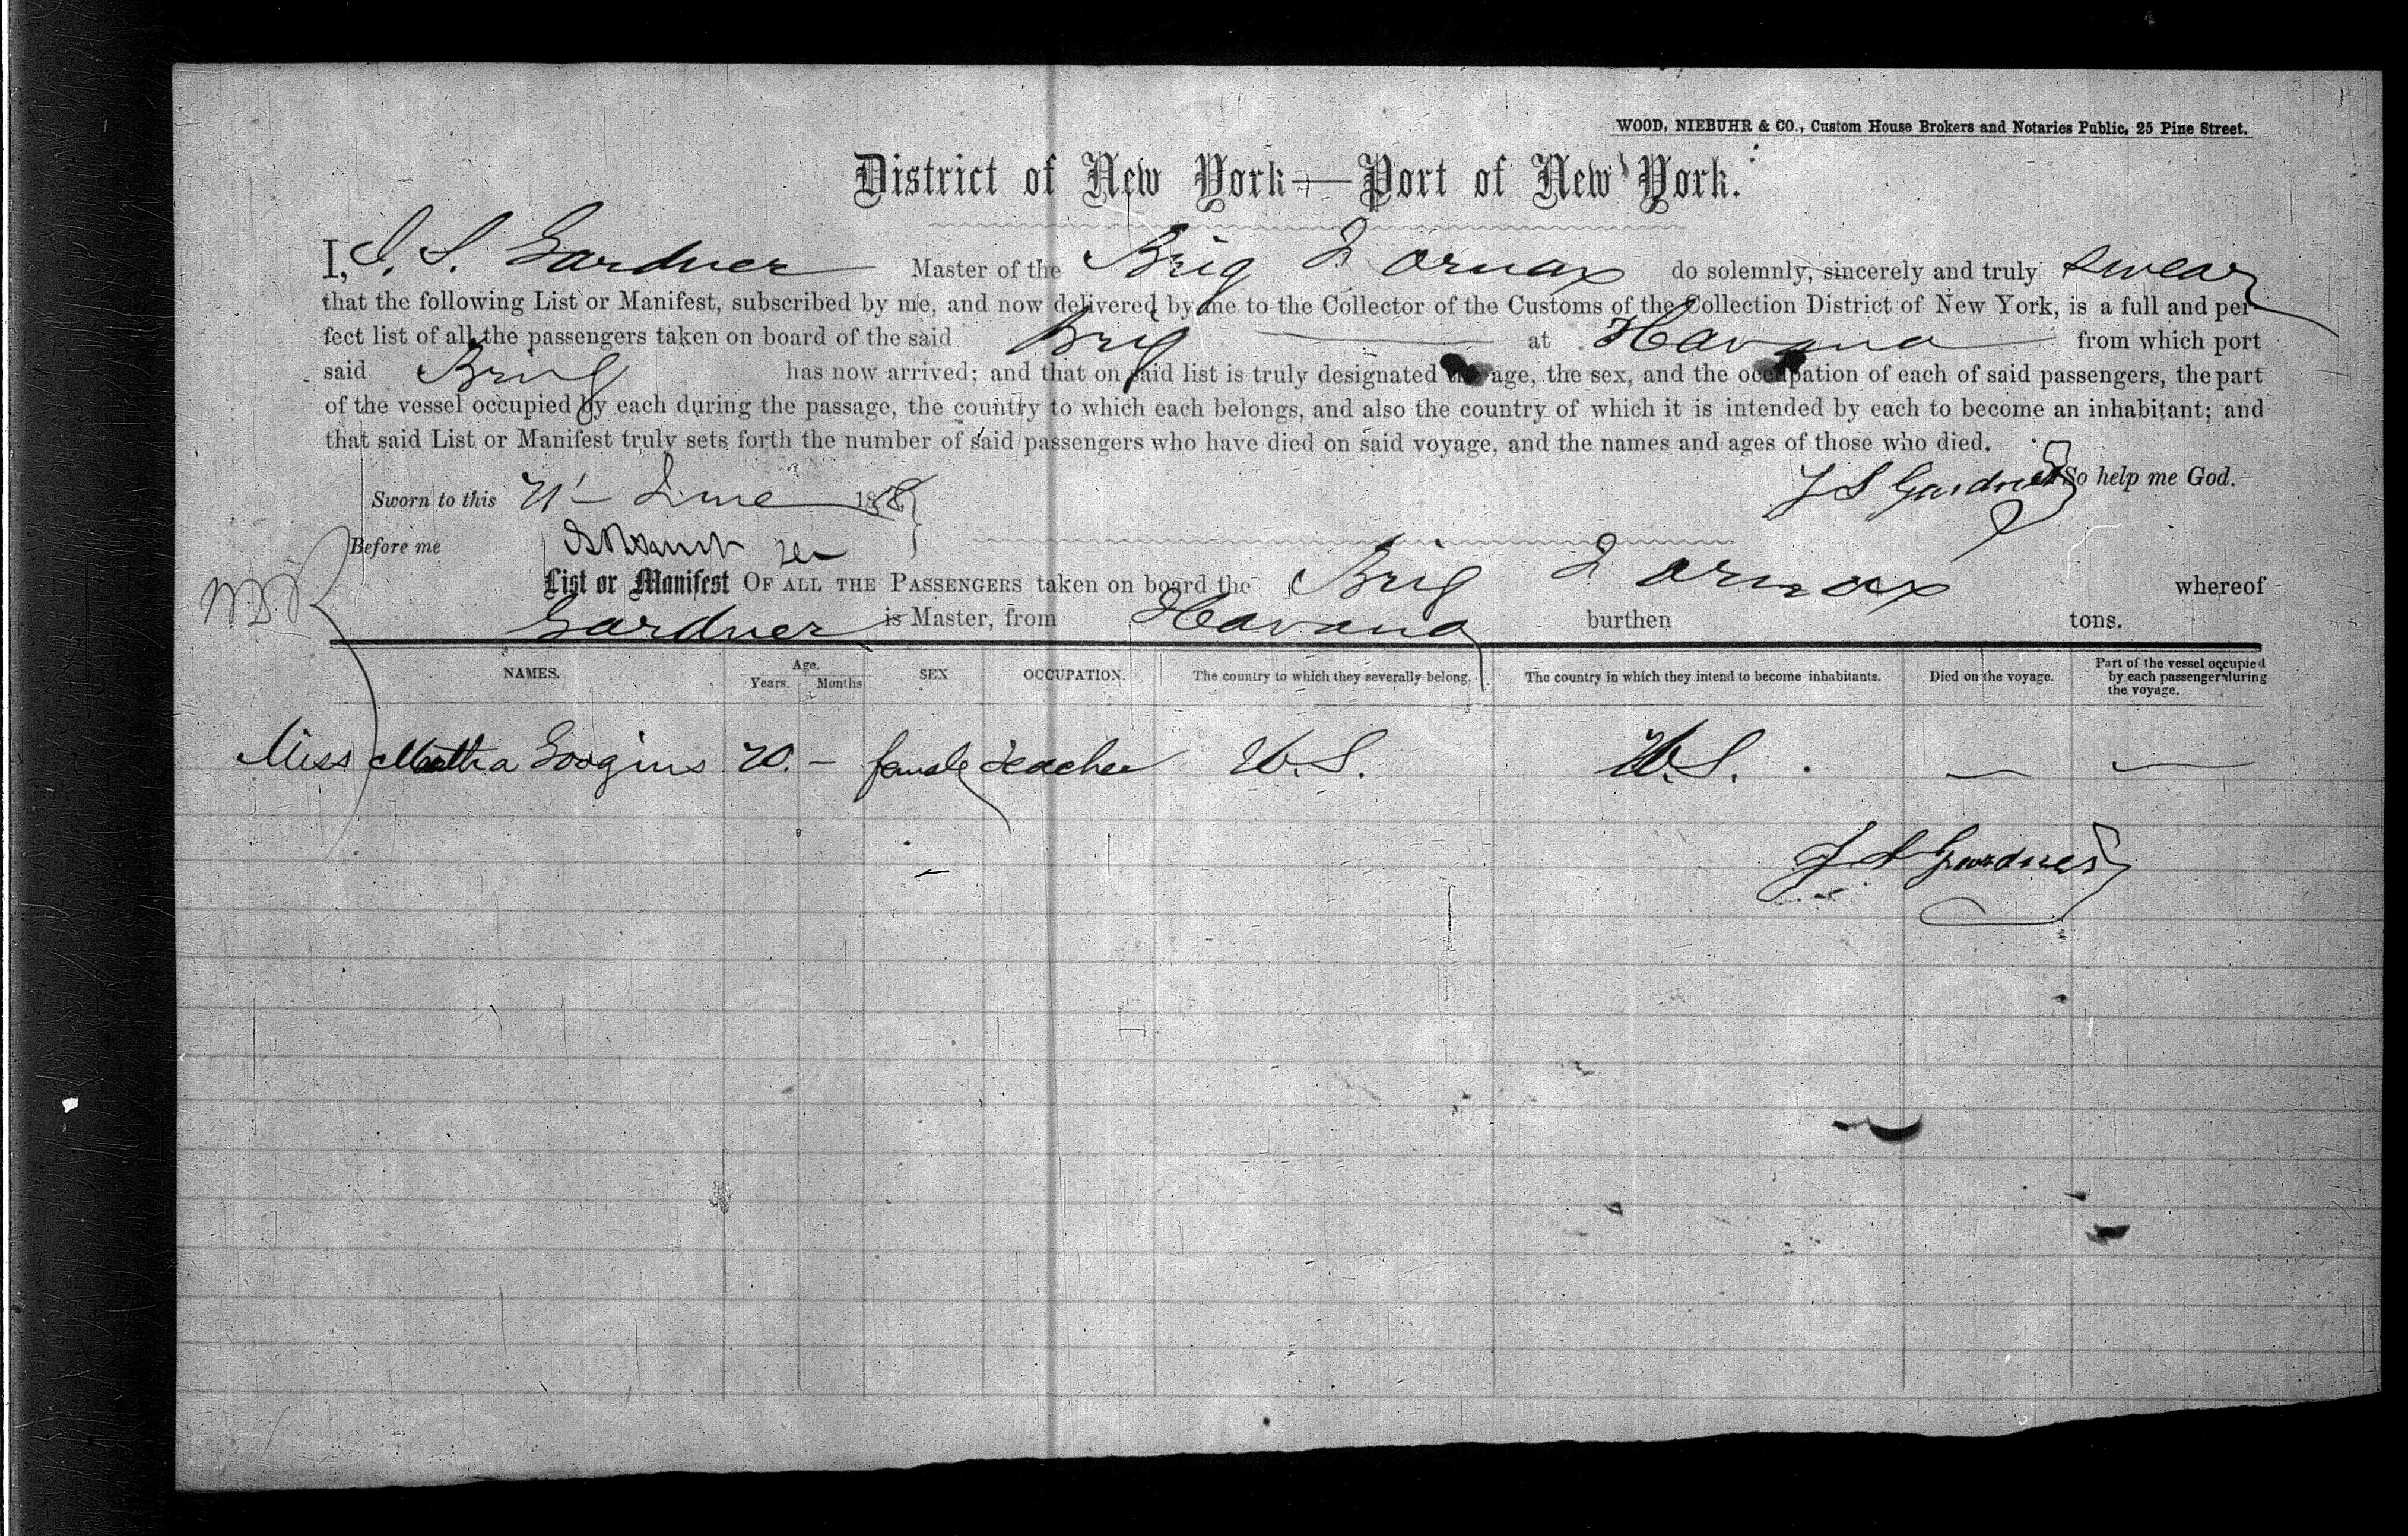 WOOD, NIEBUHR & CO., Custom House Brokers and Notaries Public, 25 Pine Street.
District of New York—Port of New York.
I, J. S. Gardner Master of the Brig do solemnly, sincerely and truly swear
that the following List or Manifest, subscribed by me, and now delivered by me to the Collector of the Customs of the Collection District of New York, is a full and per-
fect list of all the passengers taken on board of the said Brig at Havana from which port
said Brig has now arrived; and that on said list is truly designated the age, the sex, and the occupation of each of said passengers, the part
of the vessel occupied by each during the passage, the country to which each belongs, and also the country of which it is intended by each to become an inhabitant; and
that said List or Manifest truly sets forth the number of said passengers who have died on said voyage, and the names and ages of those who died.
J S Gardner So help me God.
Sworn to this 21 June 18
Before me
List or Manifest OF ALL THE PASSENGERS taken on board the Brig whereof
Gardner is Master, from Havana burthen tons.
NAMES. Age. Years. Months SEX OCCUPATION. The country to which they severally belong. The country in which they intend to become inhabitants. Died on the voyage. Part of the vessel occupied by each passenger during the voyage.
Miss Martha 20. – female teacher U.S. U.S. — —
J S Gardner